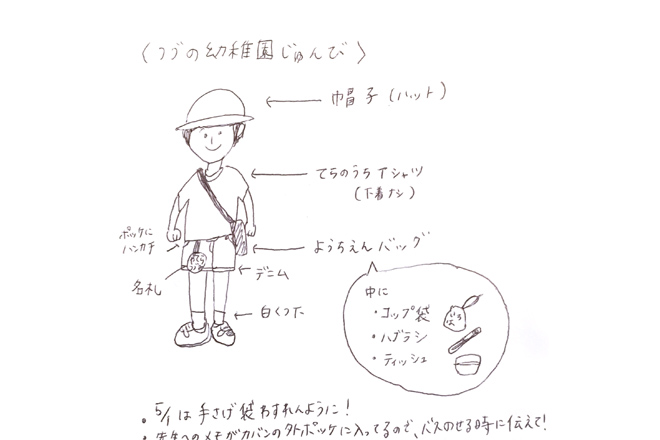 〈フヅの幼稚園じゅんび〉
帽子(ハット)
てらのうちTシャツ
(下着ナシ)
ポッケに
ハンカチ
ようちえんバッグ
デニム
名札
白くつ下
中に
・コップ袋
・ハブラシ
・ティッシュ
・5/1は手さげ袋わすれんように!
・先生へのメモがカバンの外ポッケに入ってるので、バスのせる時に伝えて!